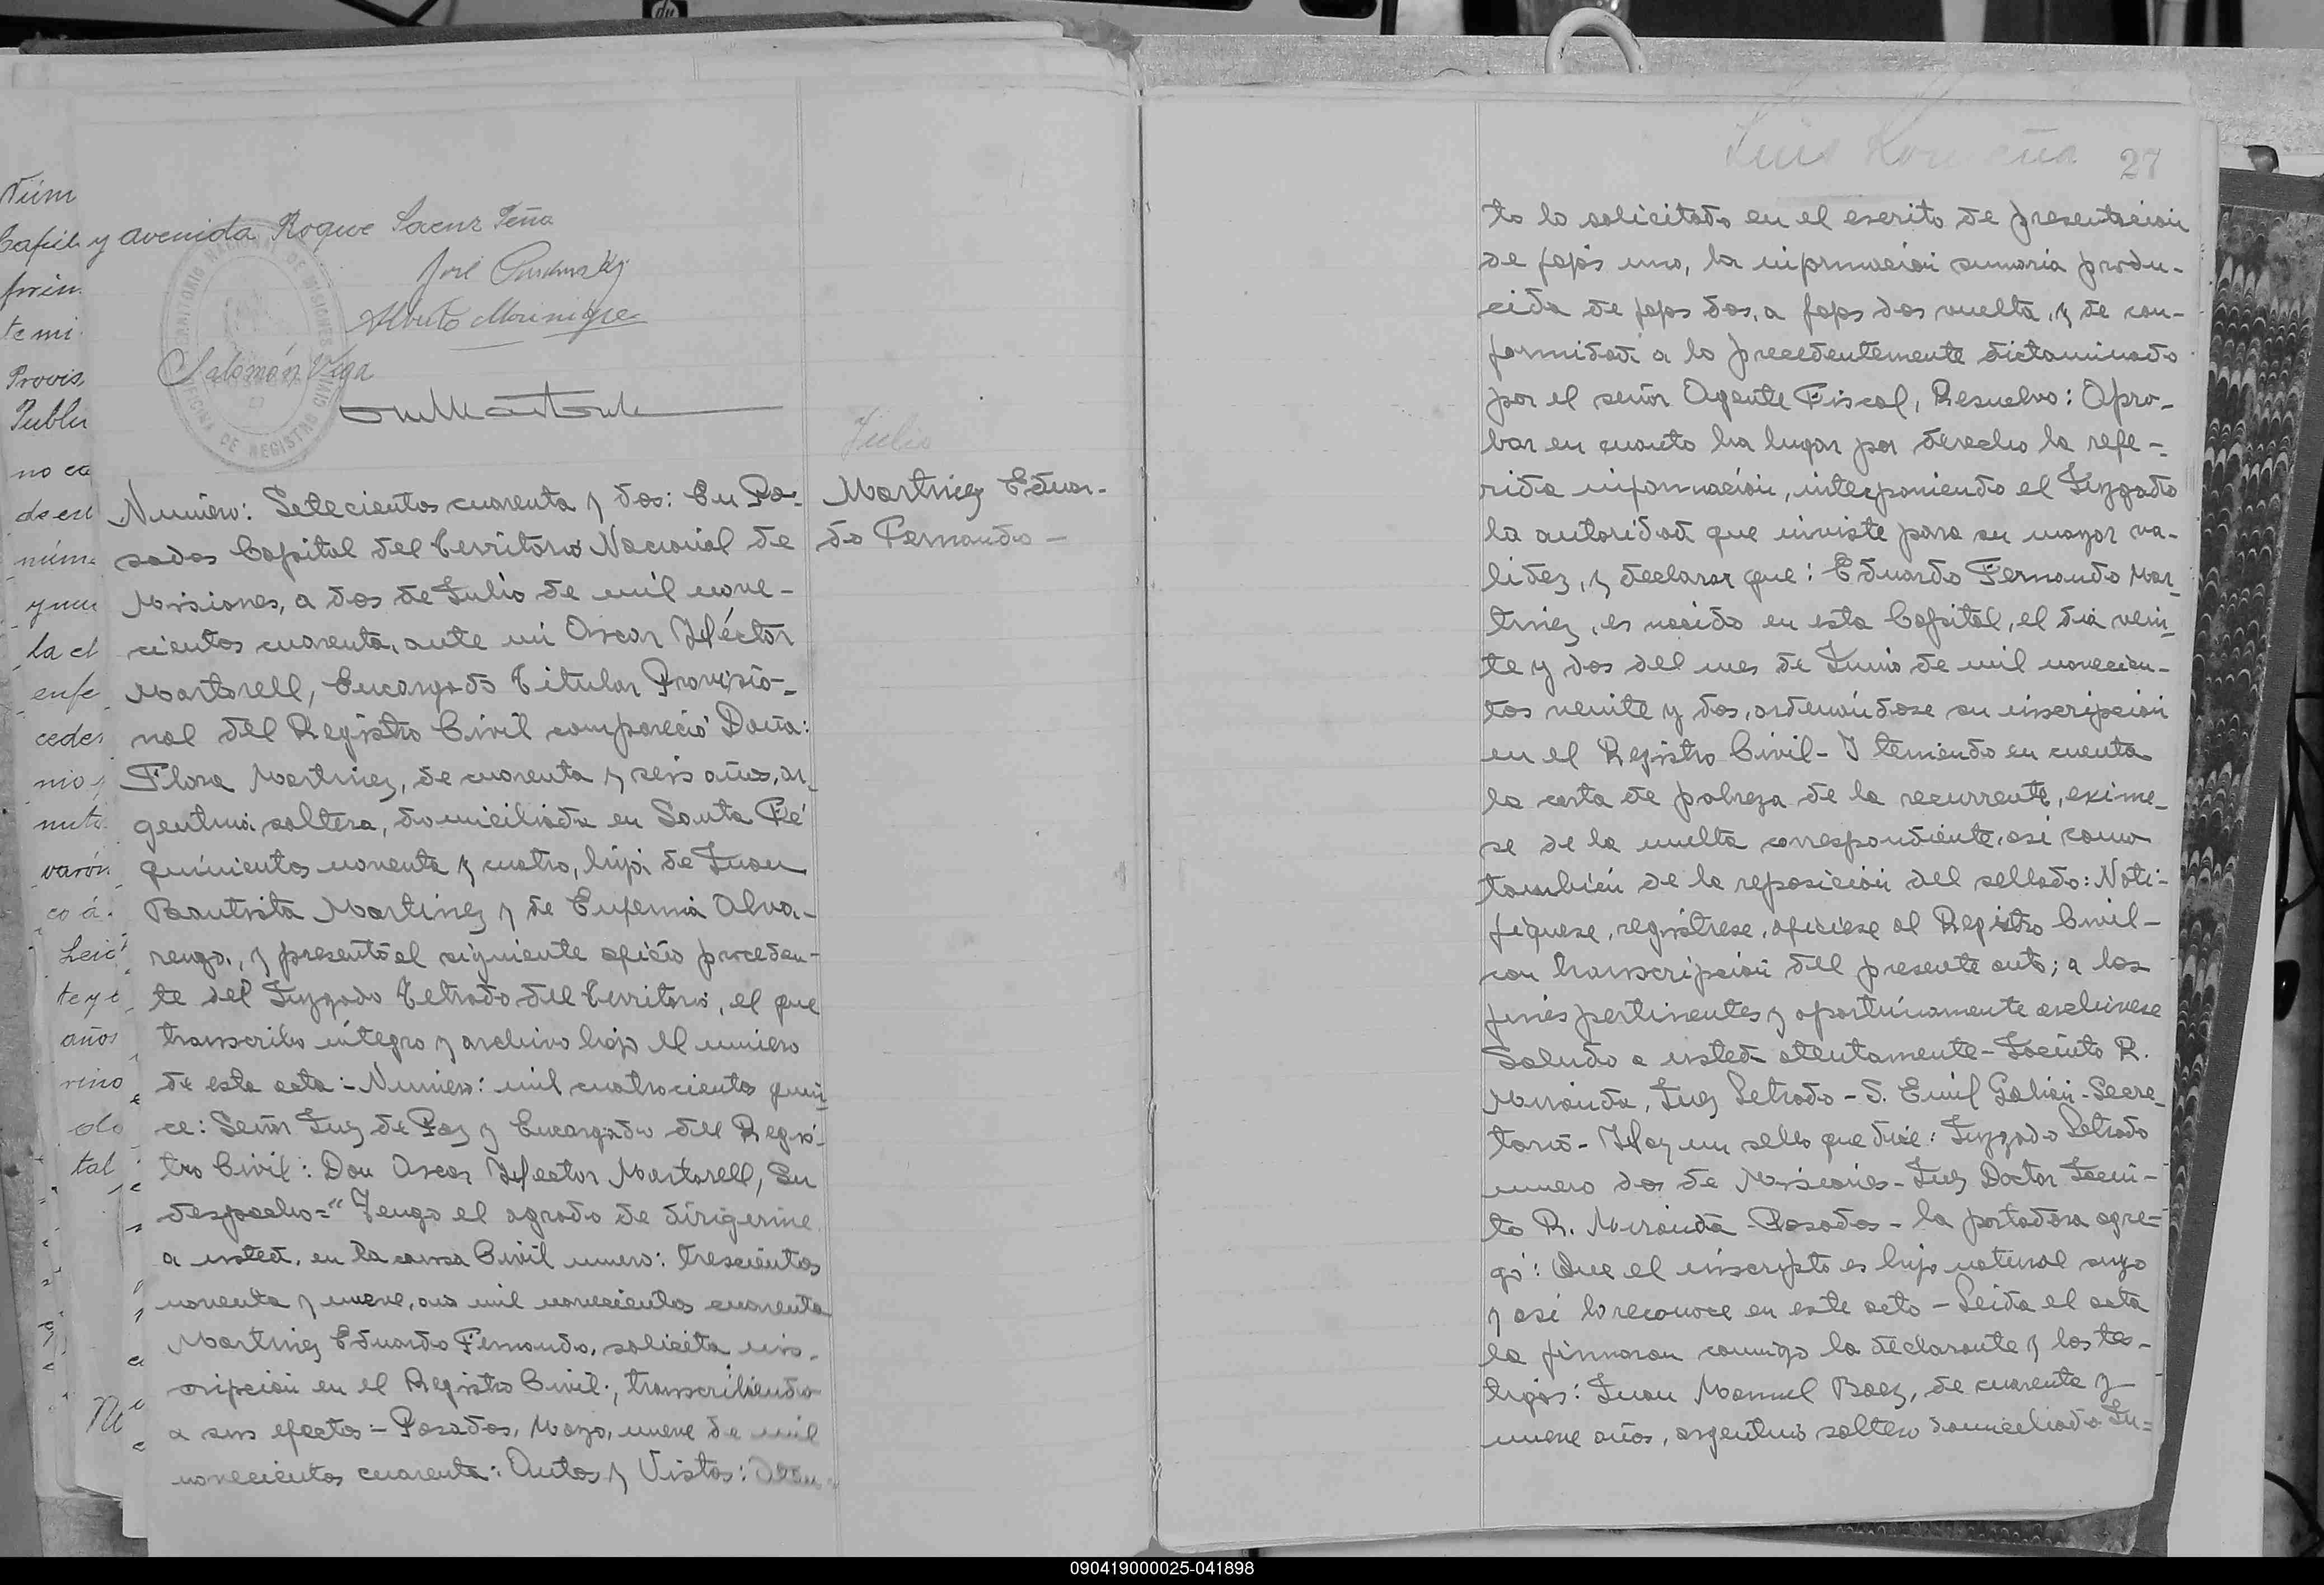 y avenida Roque Saenz Peña
José
Alberto
Salomón Vega
TERRITORIO NACIONAL DE MISIONES
OFICINA DE REGISTRO CIVIL
Julio
Martinez Eduar-
do Fernando -
Número: Setecientos cuarenta y dos: En Po-
sadas Capital del Territorio Nacional de
Misiones, a dos de Julio de mil nove-
cientos cuarenta, ante mi Oscar Héctor
Martorell, Encargado Titular Provisio-
nal del Registro Civil compareció Doña:
Flora Martinez, de cuarenta y seis años, ar-
gentina soltera, domiciliada en Santa Fé
quinientos noventa y cuatro, hija de Juan
Bautista Martinez y de Eufemia Alva-
renga, y presentó el siguiente oficio proceden-
te del Juzgado Letrado del Territorio, el que
transcribo íntegro y archivo bajo el número
de esta acta:- Número: mil cuatrocientos quin-
ce: Señor Juez de Paz y Encargado del Regis-
tro Civil: Don Oscar Hector Martorell, Su
despacho="Tengo el agrado de dirigirme
a usted, en la causa Civil número: trescientos
noventa y nueve, año mil novecientos cuarenta
Martinez Eduardo Fernando, solicita ins-
cripción en el Registro Civil:, transcribiendo
a sus efectos = Posadas, Mayo, nueve de mil
novecientos cuarenta: Autos y Vistos: Aten-
27
to lo solicitado en el escrito de presentación
de fojas una, la información sumaria produ-
cida de fojas dos, a fojas dos vuelta, y de con-
formidad a lo precedentemente dictaminado
por el señor Agente Fiscal, Resuelvo: Apro-
bar en cuanto ha lugar por derecho la refe-
rida información, interponiendo el Juzgado
la autoridad que inviste para su mayor va-
lidez, y declarar que: Eduardo Fernando Mar
tinez, es nacido en esta Capital, el día vein-
te y dos del mes de Junio de mil novecien-
tos veinte y dos, ordenándose su inscripción
en el Registro Civil- Y teniendo en cuenta
la carta de pobreza de la recurrente, exime-
se de la multa correspondiente, así como
también de la reposición del sellado: Noti-
fiquese, regístrese, ofíciese al Registro Civil-
con transcripción del presente auto; a los
fines pertinentes y oportunamente archívese
Saludo a usted atentamente- Jacinto R.
Miranda, Juez Letrado - S. Emil Galián - Secre-
tario- Hay un sello que dice: Juzgado Letrado
número dos de Misiones - Juez Doctor Jacin-
to R. Miranda - Posadas - La portadora agre-
gó: Que el inscripto es hijo natural suyo
y así lo reconoce en este acto - Leída el acta
la firmaron conmigo la declarante y los tes-
tigos: Juan Manuel Baez, de cuarenta y
nueve años, argentino soltero domiciliado Ju-
090419000025-041898